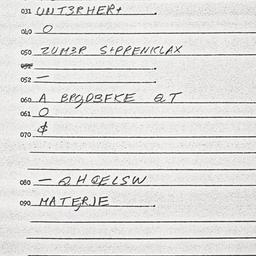 031 UNT3RHER+ .
040 O
050 ZUM3R S+PPENKLAX
052 .
052 — .
060 A BPQDBFKE QT
061 O
070 $
080 — QHQELSW
090 MATERJE .